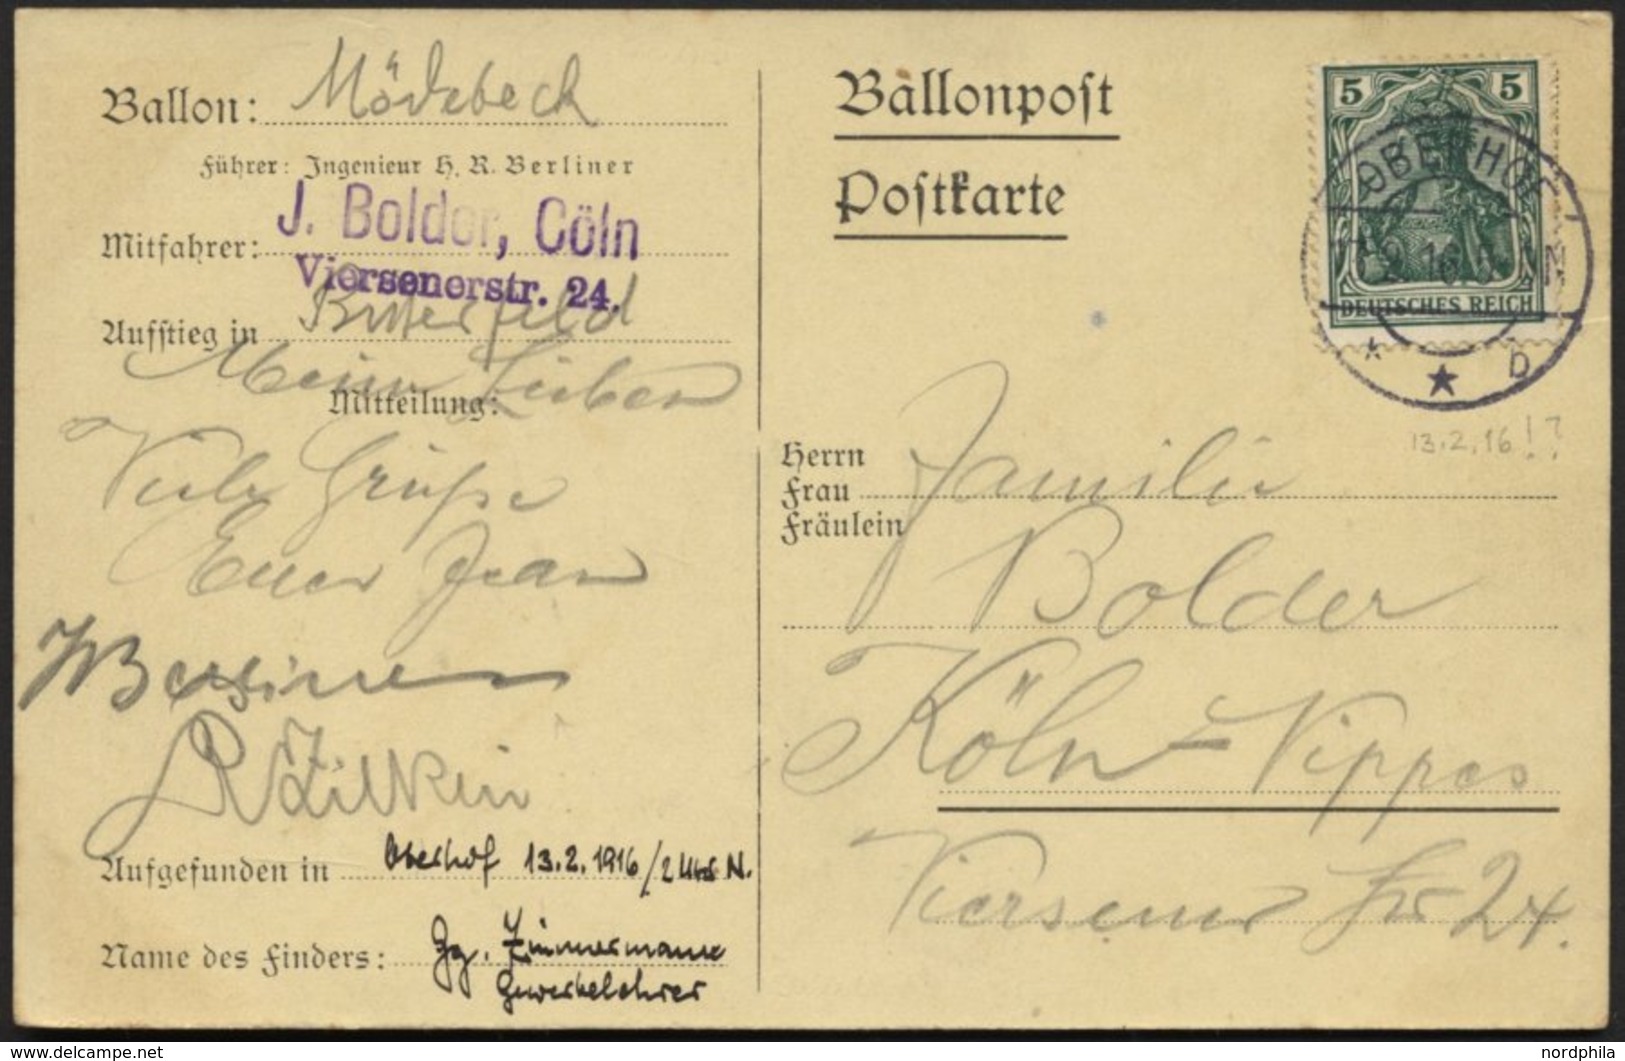 Ballon: Mödebeck
Führer: Ingenieur H. R. Berliner
J. Bolder, Cöln
Mitfahrer:
Viersenerstr. 24.
Aufstieg in Bitterfeld
Meine Lieben
Mitteilung:
Viele Grüße
Euer Jean
Berliner
Aufgefunden in Oberhof 13.2.1916/2 Uhr N.
Name des Finders: Gg. Zimmermann
Gewerbelehrer
Ballonpost
Postkarte
5 5
DEUTSCHES REICH
OBERHOF
b
13.2.16!?
Herrn
Frau Familie
Fräulein
Bolder
Köln=Nippes
Viersener Str 24.
nordphila
© www.delcampe.net